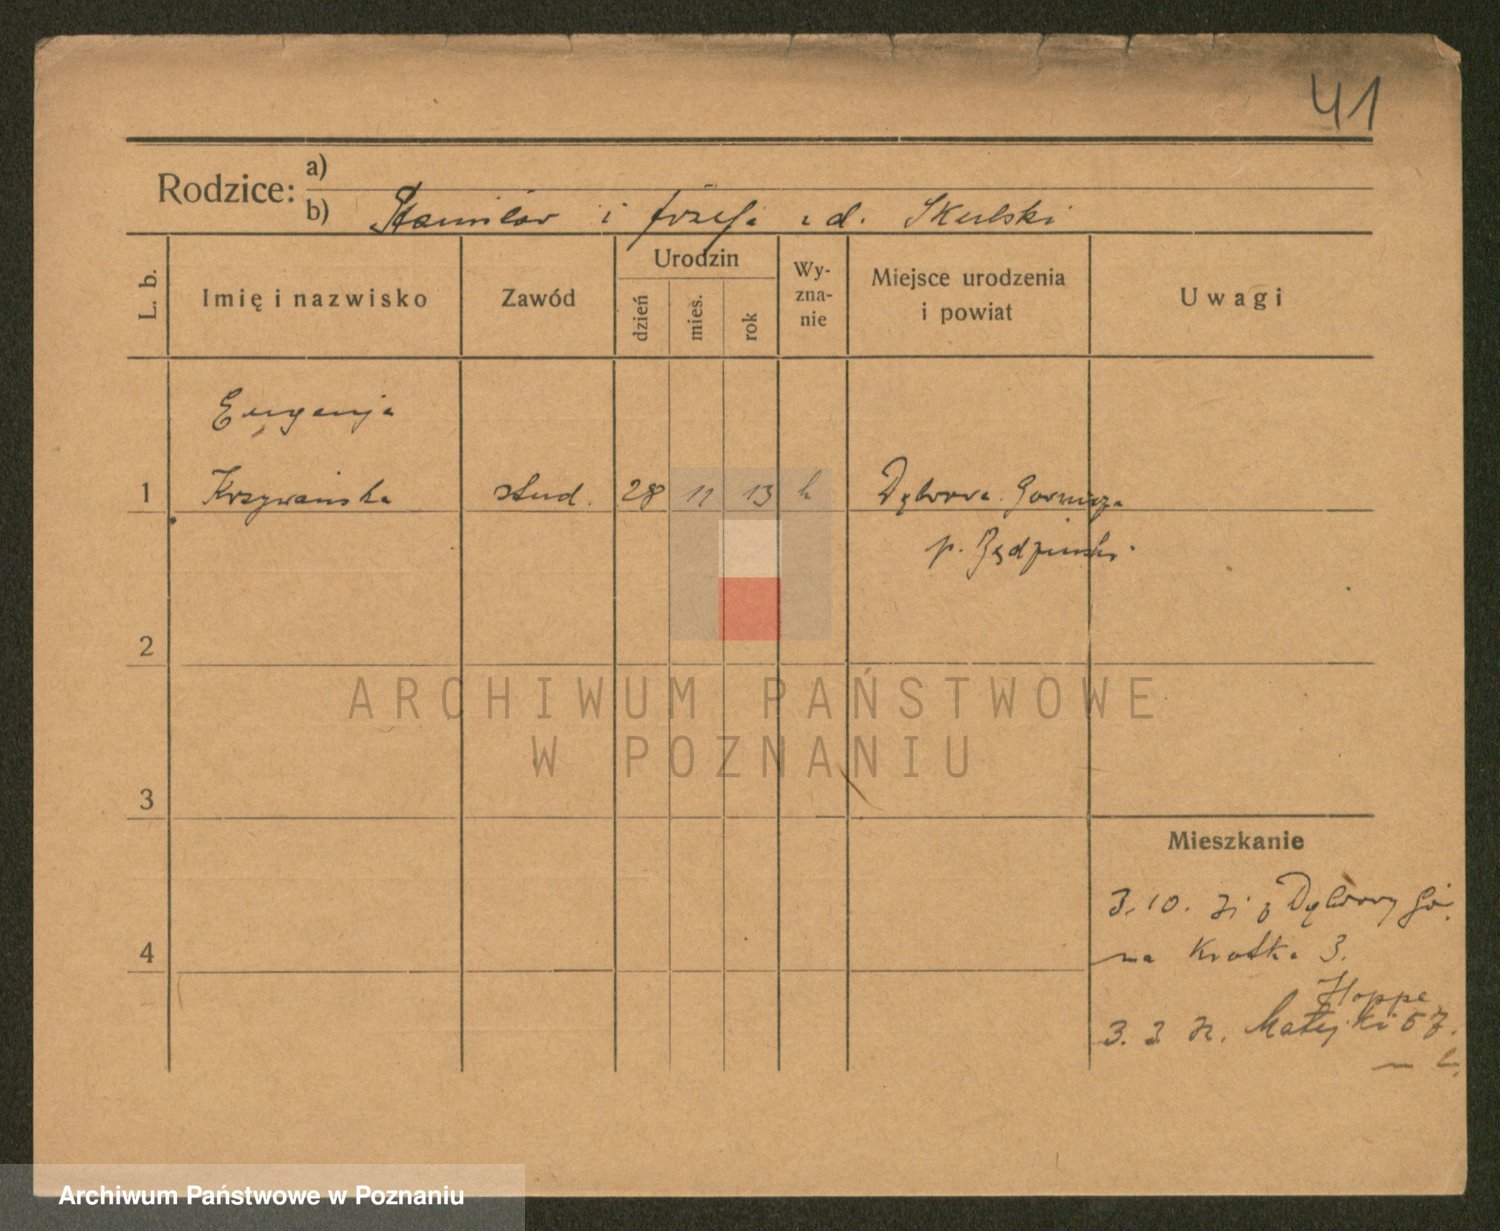 41
Rodzice:
a)
b) Stanisław i Józefa z d. Skulski
L. b.
Imię i nazwisko
Zawód
Urodzin
dzień
mies.
rok
Wy-
zna-
nie
Miejsce urodzenia
i powiat
Uwagi
Eugenja
1 Krzywańska stud. 28 11 13 k Dąbrowa Gornicza
p. Będziński
2
3
4
Mieszkanie
3.10. z Dąbrowy Gó.
na Krótka 3.
Hoppe
3. 3. Matejki 57.
ARCHIWUM PAŃSTWOWE
W POZNANIU
Archiwum Państwowe w Poznaniu